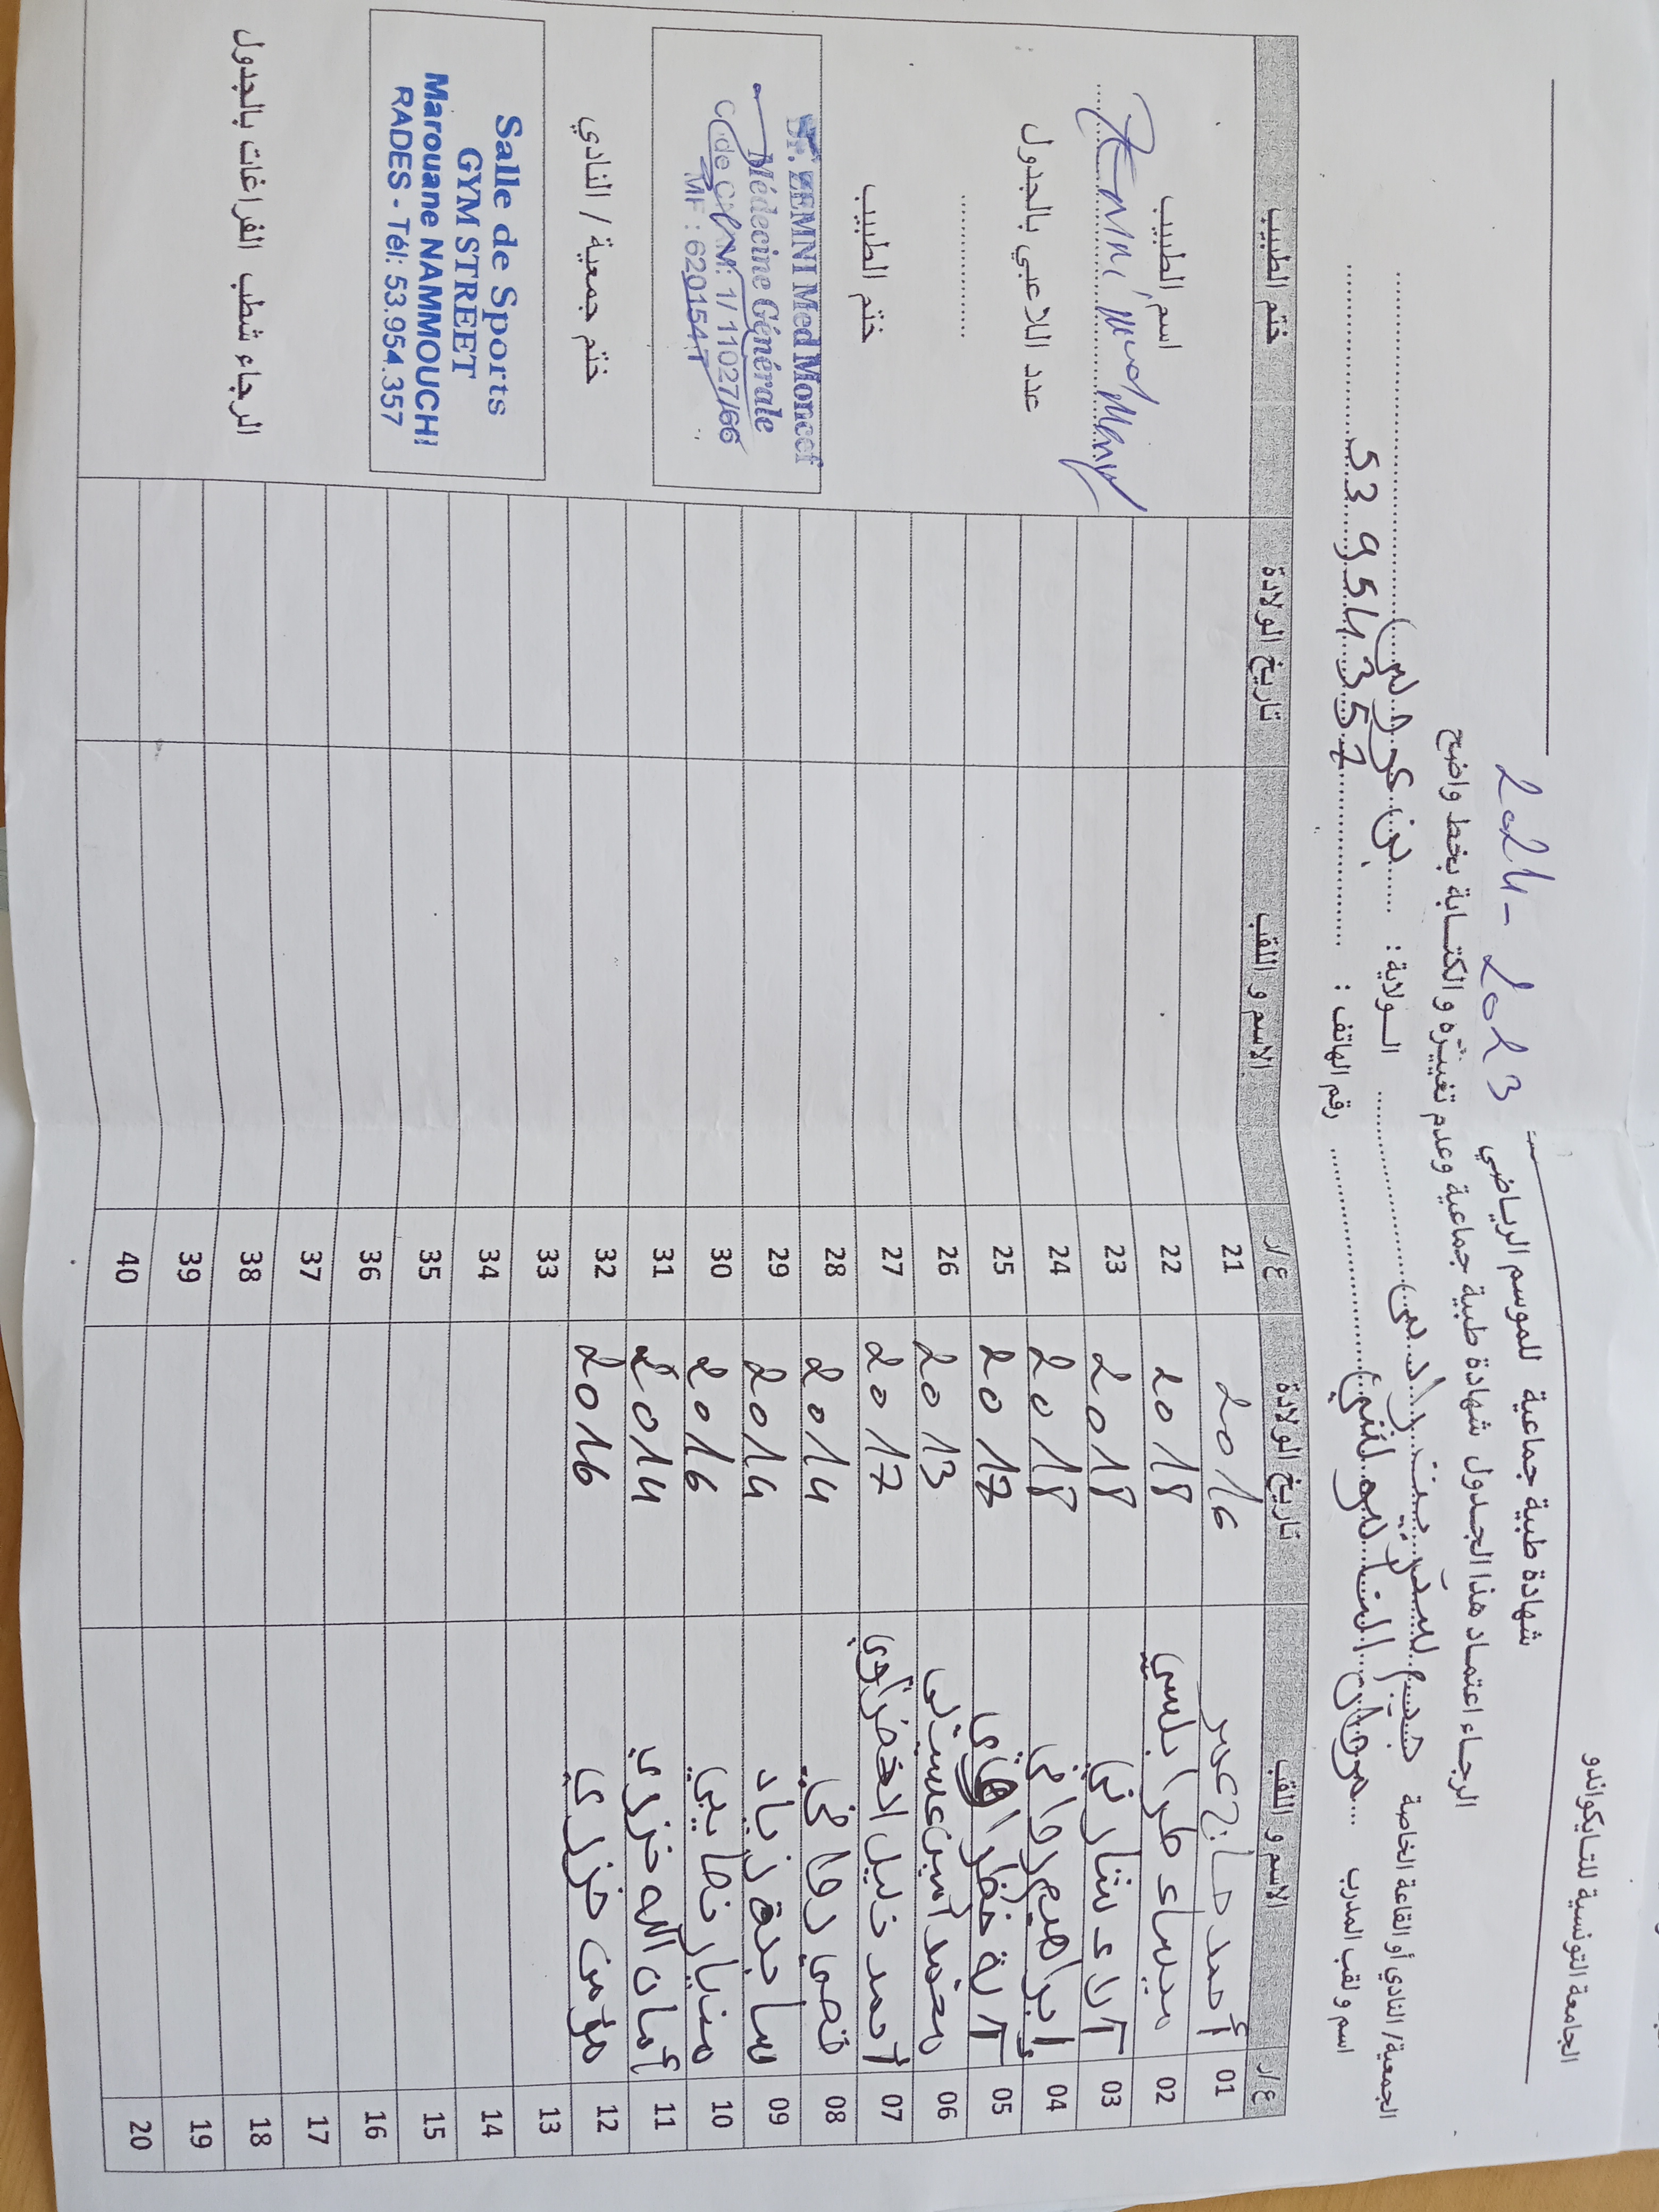 الجامعة التونسية للتايكواندو
شهادة طبية جماعية للموسم الرياضي 2023 - 2024
الرجاء اعتماد هذا الجدول شهادة طبية جماعية وعدم تغييره والكتابة بخط واضح
الجمعية/ النادي أو القاعة الخاصة جيم ستريت رادس الولاية : بن عروس
اسم و لقب المدرب مروان النموشي رقم الهاتف : 53 954 357
ع/ر الاسم و اللقب تاريخ الولادة ع/ر الاسم و اللقب تاريخ الولادة ختم الطبيب
01 أحمد حاج عمر 2016 21
02 ميساء طرابلسي 2018 22
03 آلاء شارني 2018 23
04 إبراهيم روافي 2018 24
05 آية 2017 25
06 محمد أمين 2013 26
07 أحمد خليل الخضراوي 2017 27
08 قصي روافي 2014 28
09 ساجدة زياد 2014 29
10 2016 30
11 أمان الله خزري 2014 31
12 مؤمن خزري 2016 32
13 33
14 34
15 35
16 36
17 37
18 38
19 39
20 40
اسم الطبيب
Zemni Med
عدد اللاعبي بالجدول
ختم الطبيب
Dr. ZEMNI Med Moncef
Médecine Générale
Code CNAM: 1/11027/66
MF : 620154T
ختم جمعية / النادي
Salle de Sports
GYM STREET
Marouane NAMMOUCHI
RADES - Tél: 53.954.357
الرجاء شطب الفراغات بالجدول